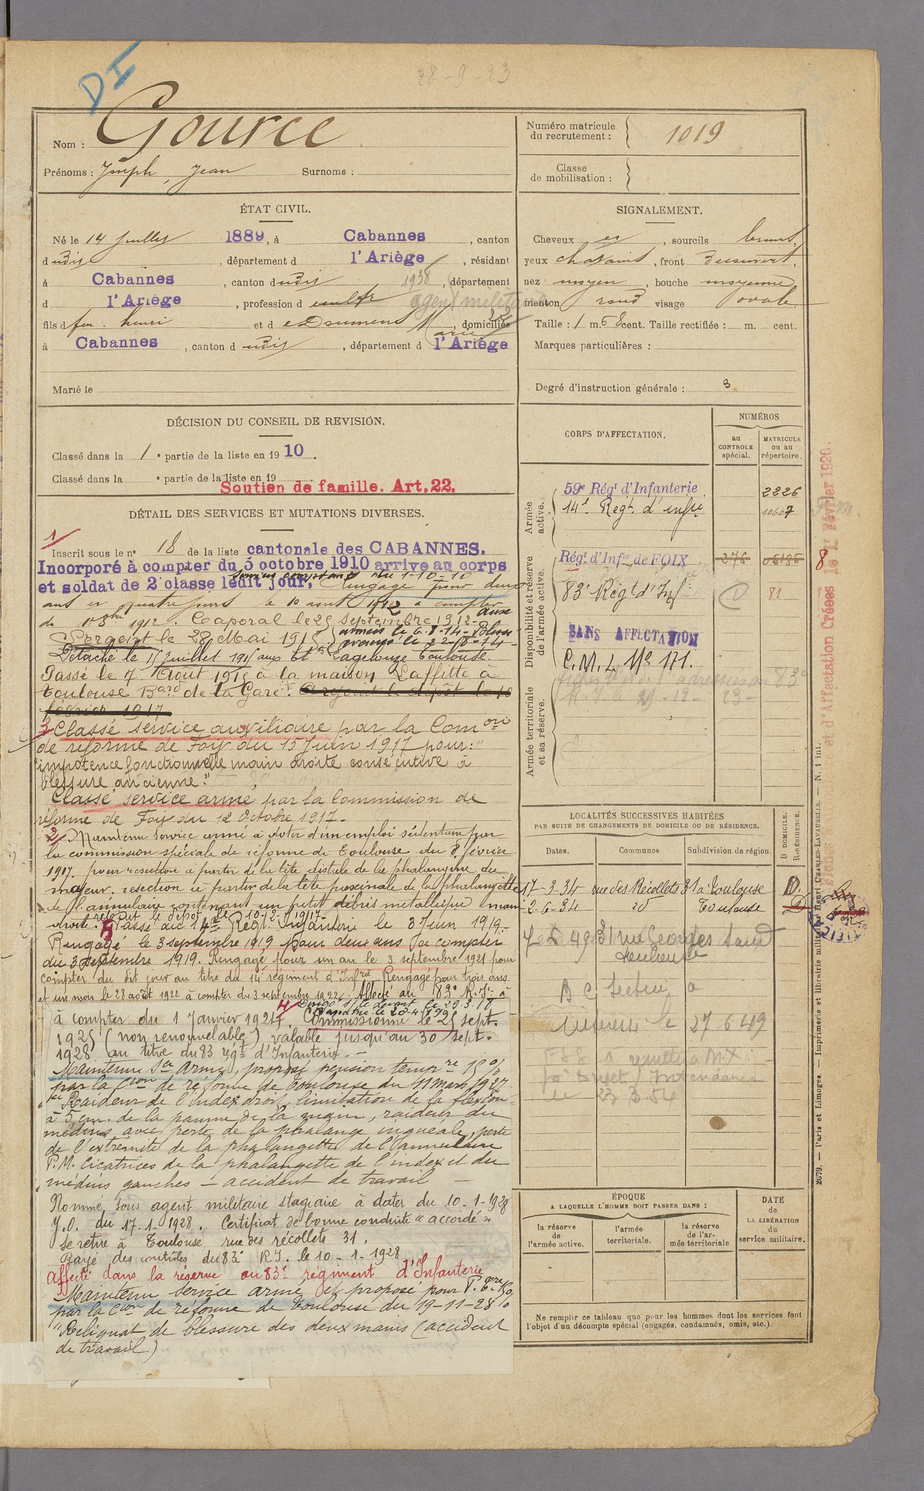 DI
28-9-23
Nom : Gource
Prénoms : Joseph, Jean Surnoms :
Numéro matricule du recrutement : 1019
Classe de mobilisation :
ÉTAT CIVIL.
Né le 14 Juillet 1889, à Cabannes, canton
dudit, département d l'Ariège, résidant
à Cabannes, canton dudit 1938, département
d l'Ariège, profession d cultr agent milit
fils d feu Henri et d , domiciliés
à Cabannes, canton dudit, département d l'Ariège
Marié le
SIGNALEMENT.
Cheveux et, sourcils bruns,
yeux chatains, front découvert,
nez moyen, bouche moyenne,
menton rond visage ovale
Taille : 1 m. 58 cent. Taille rectifiée : m. cent.
Marques particulières :
Degré d'instruction générale : 3
DÉCISION DU CONSEIL DE REVISION.
Classé dans la 1e partie de la liste en 1910.
Classé dans la e partie de la liste en 19
Soutien de famille. Art. 22.
DÉTAIL DES SERVICES ET MUTATIONS DIVERSES.
1/
Inscrit sous le no 18 de la liste cantonale des CABANNES.
Incorporé à compter du 5 octobre 1910 arrivé au corps
et soldat de 2e classe ledit jour, service comptant du 1-10-10 Rengagé pour deux
ans et quatre jours le 10 août 1912 à compter
du 1er 8bre 1912. Caporal le 25 septembre 1912.
Sergent le 28 Mai 1915
Détaché le 15 Juillet 1915 aux Lagelouze Toulouse.
Passé le 7 Août 1915 à la maison Laffitte à
Toulouse Bard de la Gare. Sergent le dépôt le 10
février 1917
3 Classé service auxiliaire par la Comon
de réforme de Foix du 15 Juin 1917 pour : "
impotence fonctionnelle main droite consécutive à
blessure ancienne."
Classé service armé par la Commission de
réforme de Foix du 12 Octobre 1917.
2/ Maintenu service armé à doter d'un emploi sédentaire par
la commission spéciale de réforme de Toulouse du 8 février
1917. pour résection a partir de la tête distale de la phalangine du
majeur. résection a partir de la tête proximale de la phalangette
de l'annulaire contenant un petit débris métallique (main
droite. 5 Passé au 14e Régt Infanterie le 3 Juin 1919.
Rengagé le 3 septembre 1919 pour deux ans à compter
du 3 septembre 1919. Rengagé pour un an le 3 septembre 1921 pour
compter du dit jour au titre du 14e régiment d'Infrie Rengagé pour trois ans
et un mois le 28 août 1922 à compter du 3 septembre 1922. Affecté au 83e R.I. à
à compter du 1 Janvier 1924. Commissionné le 25 sept.
1925 (non renouvelable) valable jusqu'au 30 sept.
1928 au titre du 83 régt d'Infanterie. -
Maintenu sce armé, proposé pension tempre 15%
par la Cion de réforme de Toulouse du 11 mars 1927
Raideur de l'index droit, limitation de la flexion
à 5 cm. de la paume de la main, raideur du
médius avec perte de la phalange unguéale, perte
de l'extrémité de la phalangette de l'annulaire
P.M. Cicatrices de la phalangette de l'index et du
médius gauches - accident de travail -
Nommé, sous agent militaire stagiaire à dater du 10-1-1928
J.O. du 17-1-1928. Certificat de bonne conduite "accordé"
Se retire à Toulouse rue des récollets 31.
Rayé des contrôles du 83e R.I. le 10-1-1928
affecté dans la réserve au 83e régiment d'Infanterie
Maintenu service armé et proposé pour P.
par la Cion de réforme de Toulouse du 19-11-28
"Reliquat de blessure des deux mains (accident
de travail.)
CORPS D'AFFECTATION.
NUMÉROS
AU CONTROLE SPÉCIAL.
MATRICULE OU AU RÉPERTOIRE.
Armée active.
59e Régt d'Infanterie 2226
14e Régt d'infie
Disponibilité et réserve de l'armée active.
Régt d'Infie de FOIX 276
83e Régt d'Infie 81
SANS AFFECTATION
C.M. 4 No 171.
Armée territoriale et sa réserve.
LOCALITÉS SUCCESSIVES HABITÉES
PAR SUITE DE CHANGEMENTS DE DOMICILE OU DE RÉSIDENCE.
Dates. Communes Subdivision de région
D. DOMICILE. R. RÉSIDENCE.
17-3-34 rue des Récollets 31 a Toulouse D.
2-6-34 do Toulouse D
31 rue Georges Sand
Toulouse
27 6 49
23 3 54
ÉPOQUE
A LAQUELLE L'HOMME DOIT PASSER DANS :
la réserve de l'armée active.
l'armée territoriale.
la réserve de l'armée territoriale
DATE de LA LIBÉRATION du service militaire.
Ne remplir ce tableau que pour les hommes dont les services font
l'objet d'un décompte spécial (engagés, condamnés, omis, etc.).
2679. — Paris et Limoges. — Imprimerie et librairie militaires Henri CHARLES-LAVAUZELLE. — N. 1 int.